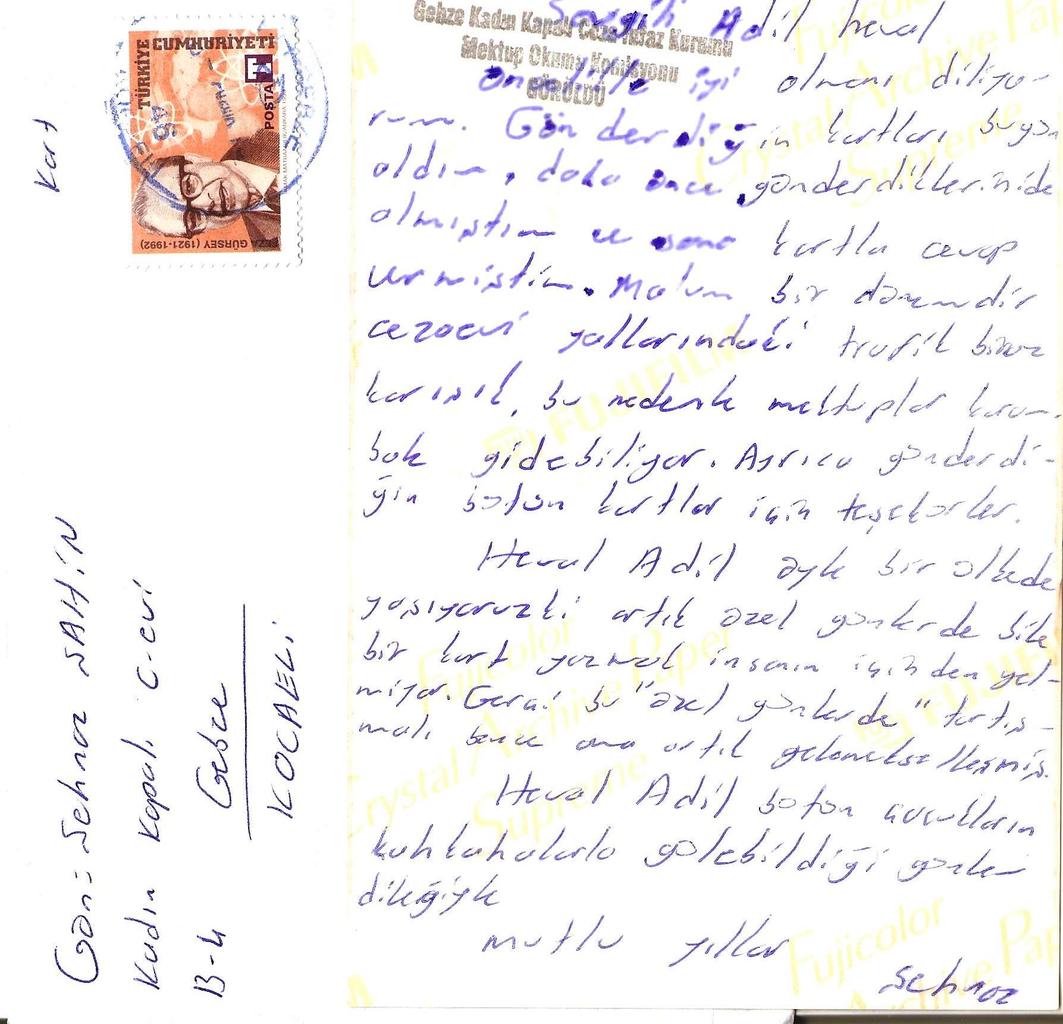 Kart
TÜRKİYE CUMHURİYETİ
POSTA
FEZA GÜRSEY (1921-1992)
Gön: Şehnaz ŞAHİN
Kadın Kapalı C-evi
B-4 Gebze
KOCAELİ
Gebze Kadın Kapalı Ceza İnfaz Kurumu
Mektup Okuma Komisyonu
GÖRÜLDÜ
Sevgili Adil heval
Öncelikle iyi olmanı diliyo-
rum. Gönderdiğin kartları bugün
aldım, daha önce gönderdiklerinide
almıştım ve sana kartla cevap
vermiştim. Malum bir dönemdir
cezaevi yollarındaki trafik biraz
karışık, bu nedenle mektuplar karam-
bole gidebiliyor. Ayrıca gönderdi-
ğin bütün kartlar için teşekkürler.
Heval Adil öyle bir ülkede
yaşıyoruzki artık özel günlerde bile
bir kart yazmak insanın içinden gel-
miyor. Gerçi bu "özel günlerde" tartış-
malı bence ama artık gelenekselleşmiş.
Heval Adil bütün çocukların
kahkahalarla gülebildiği günler
dileğiyle
mutlu yıllar
Şehnaz
Fujicolor
Crystal Archive Paper
Supreme
FUJIFILM